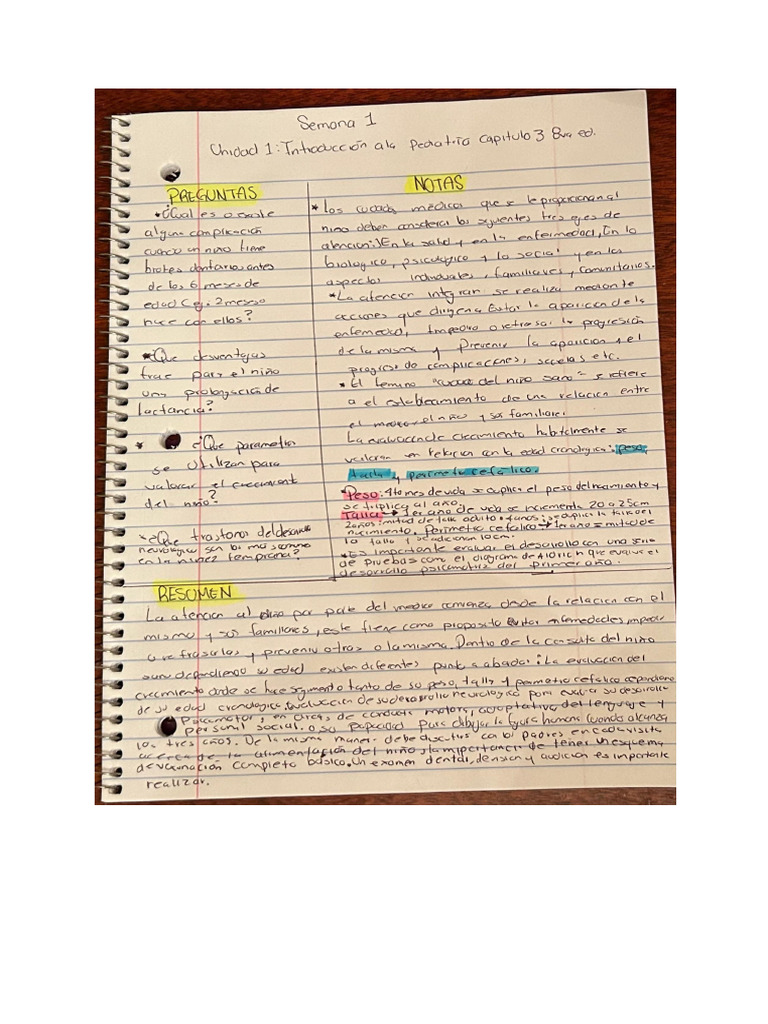 Semana 1
Unidad 1: Introducción a la Pediatria Capitulo 3 8va ed.
PREGUNTAS
• ¿Cual es o existe
alguna complicación
cuando un niño tiene
brotes dentarios antes
de los 6 meses de
edad (eg: 2 meses o
nace con ellos?
* ¿Que desventajas
trae para el niño
una prolongación de
lactancia?
* ¿Que parametros
se utilizan para
valorar el crecimiento
del niño?
• ¿Que trastornos del desarrollo
neurologico son los mas comunes
en la niñez temprana?
NOTAS
* Los cuidados médicos que se le proporcionan al
niño deben considerar los siguientes tres ejes de
atencion: )En la salud y en la enfermedad, En lo
biologico, psicologico y lo social y en los
aspectos individuales, familiares y comunitarios.
* La atencion integral se realiza mediante
acciones que dirigen a Evitar la aparicion de la
enfermedad, Impedir o retrasar la progresión
de la misma y Prevenir la aparicion y el
progreso de complicaciones, secuelas etc.
* El termino "cuidado del niño sano" se refiere
a el establecimiento de una relacion entre
el medico, el niño y sus familiares.
La evaluacion de crecimiento habitualmente se
valoran en relacion con la edad cronologica: peso,
talla y perimetro cefalico.
• Peso: 4to mes de vida se duplica el peso del nacimiento y
se triplica al año.
Talla → 1er año de vida se incrementa 20 a 25cm
2 años: mitad de talla adulto 4 años: se duplica la talla del
nacimiento. Perimetro cefalico → 1er año = mitad de
la talla y se adicionan 10cm.
• Es importante evaluar el desarrollo con una serie
de pruebas como el diagrama de que evalua el
desarrollo psicomotriz del primer año.
RESUMEN
La atencion al niño por parte del medico comienza desde la relacion con el
mismo y sus familiares, este tiene como proposito Evitar enfermedades, impedir
o retrasarlas y prevenir otras o la misma. Dentro de la consulta del niño
sano dependiendo su edad existen diferentes puntos a abordar: La evaluacion del
crecimiento donde se hace seguimiento tanto de su peso, talla y perimetro cefalico dependiendo
de su edad cronologica. Evaluacion de su desarrollo neurologico para evaluar su desarrollo
Psicomotor, en areas de conducta motora, adaptativa del lenguaje y
personal social. o su capacidad para dibujar la figura humana cuando alcanza
los tres años. De la misma manera debe discutirse con los padres en cada visita
acerca de la alimentación del niño y la importancia de tener un esquema
de vacunación completo básico. Un examen dental, de vision y audicion es importante
realizar.